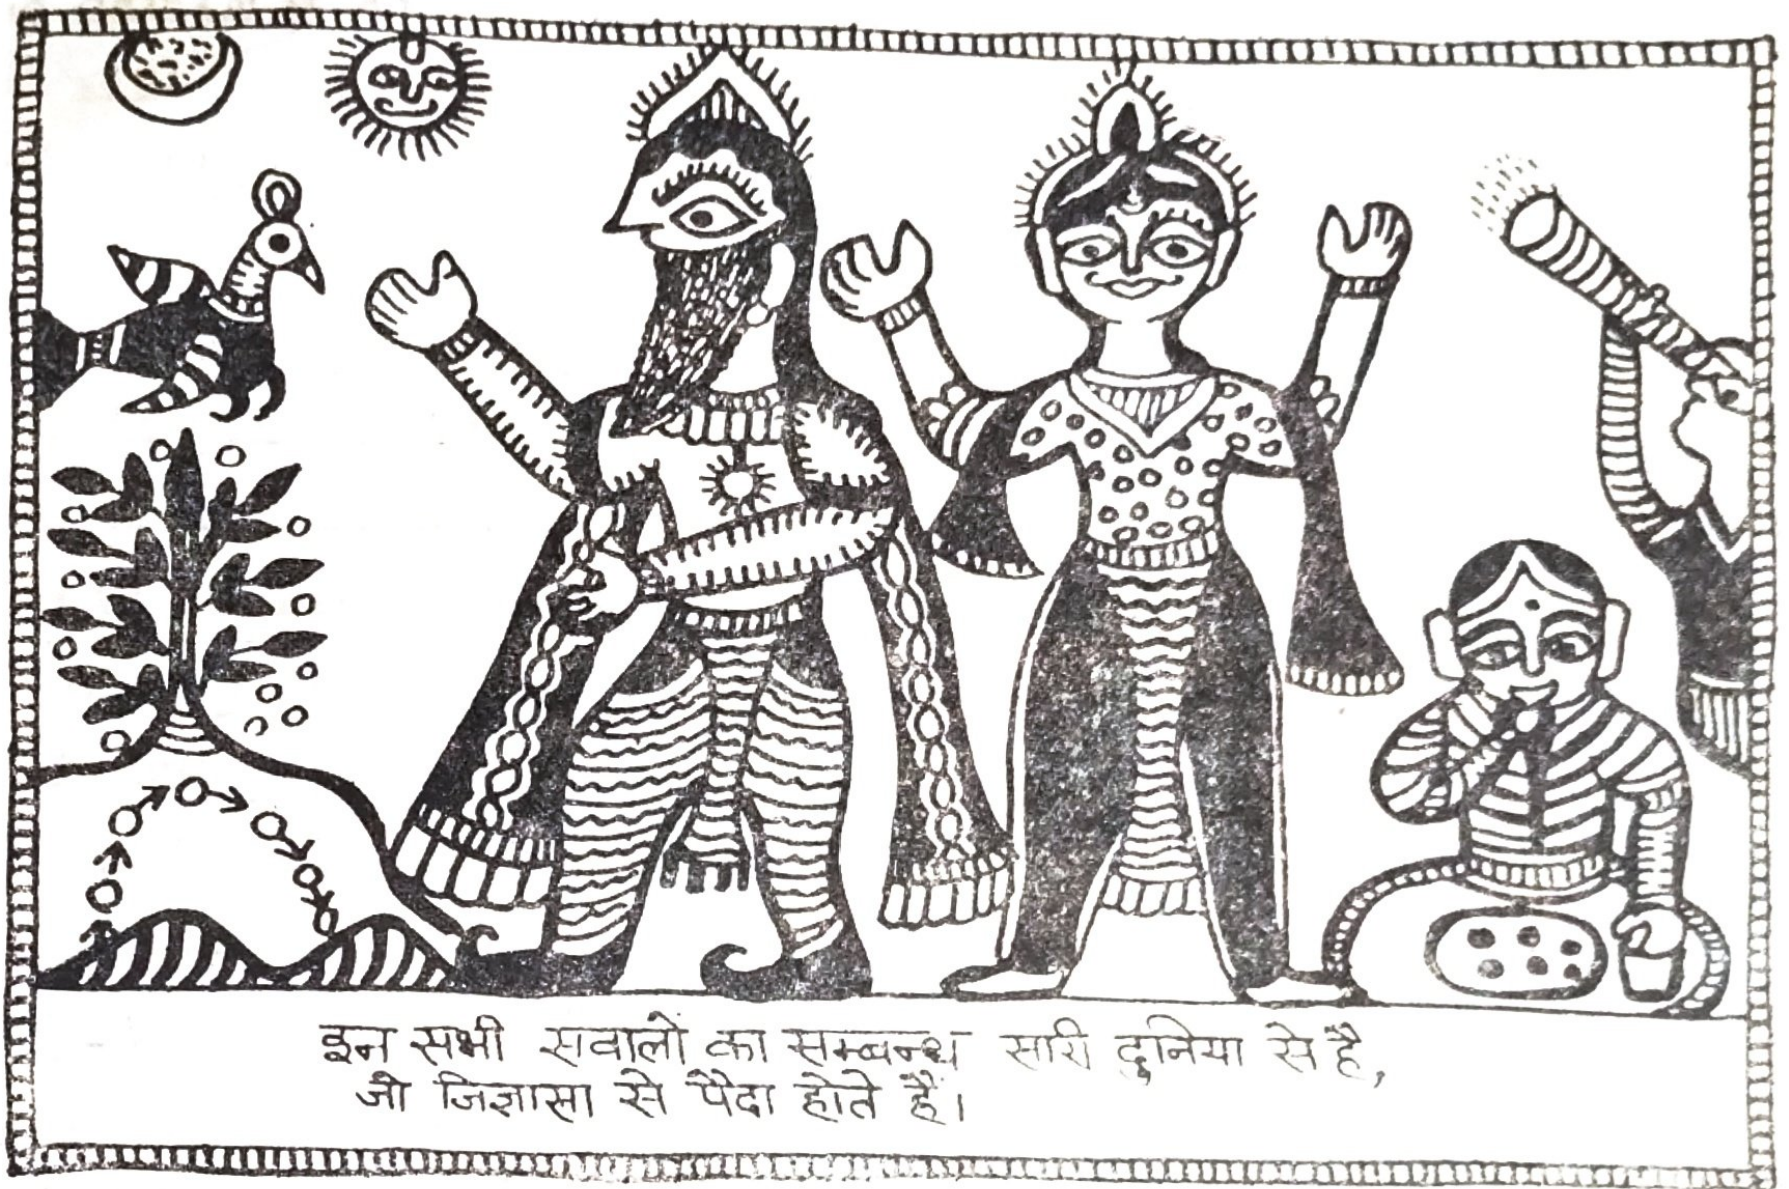 इन सभी सवालों का सम्बन्ध सारी दुनिया से है,
जो जिज्ञासा से पैदा होते हैं।